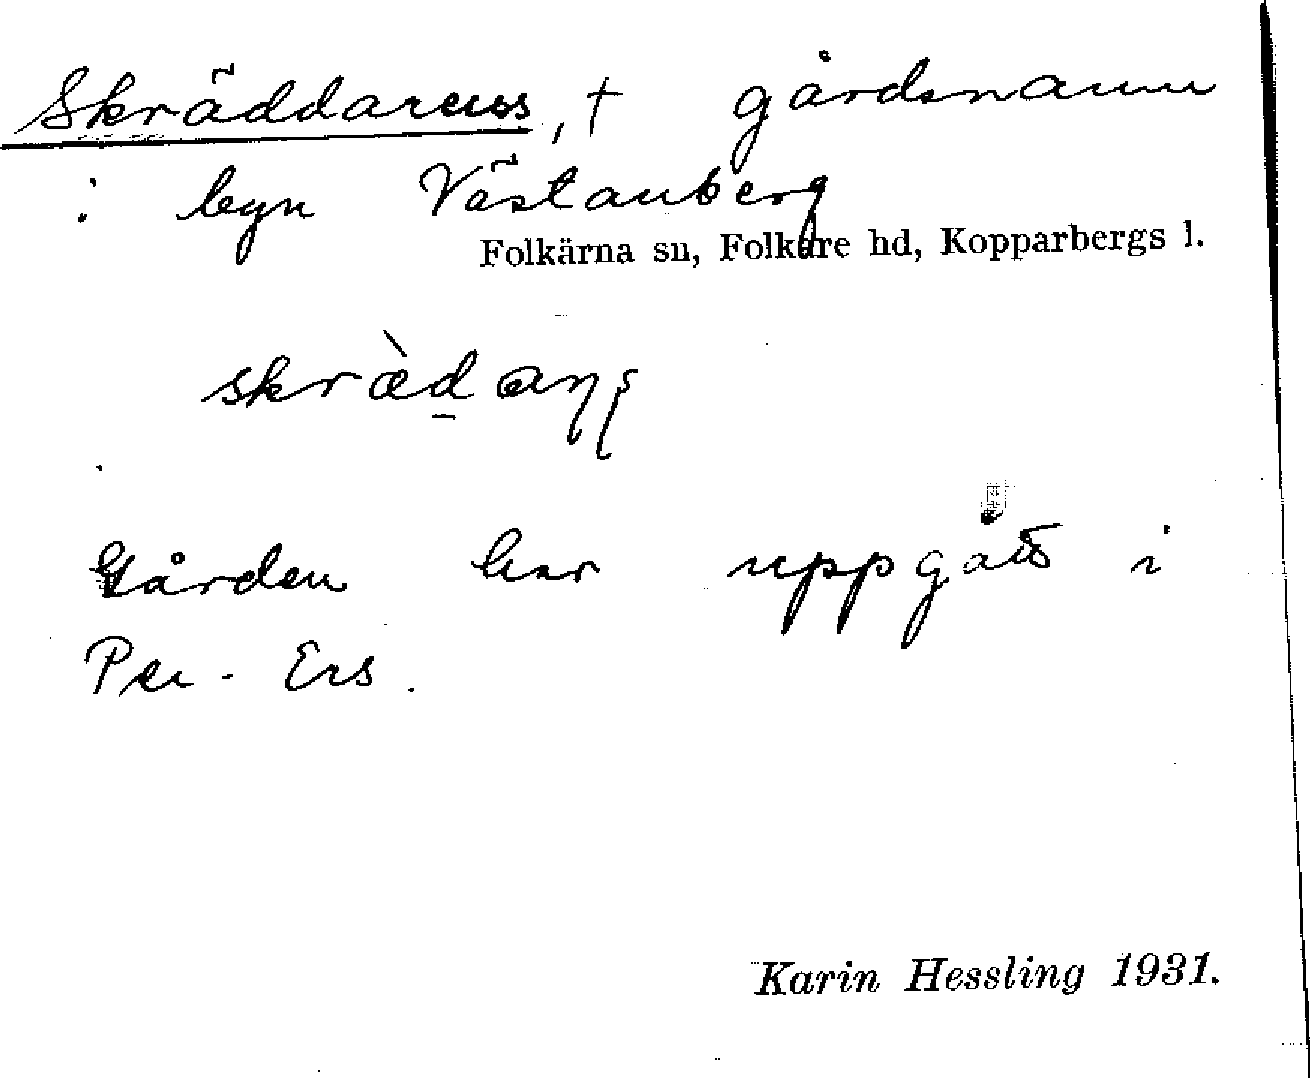 Skräddarens, † gårdsnamn
i byn Västanberg
Folkärna sn, Folkare hd, Kopparbergs l.
Gården har uppgått i
Per-Ers.
Karin Hessling 1931.